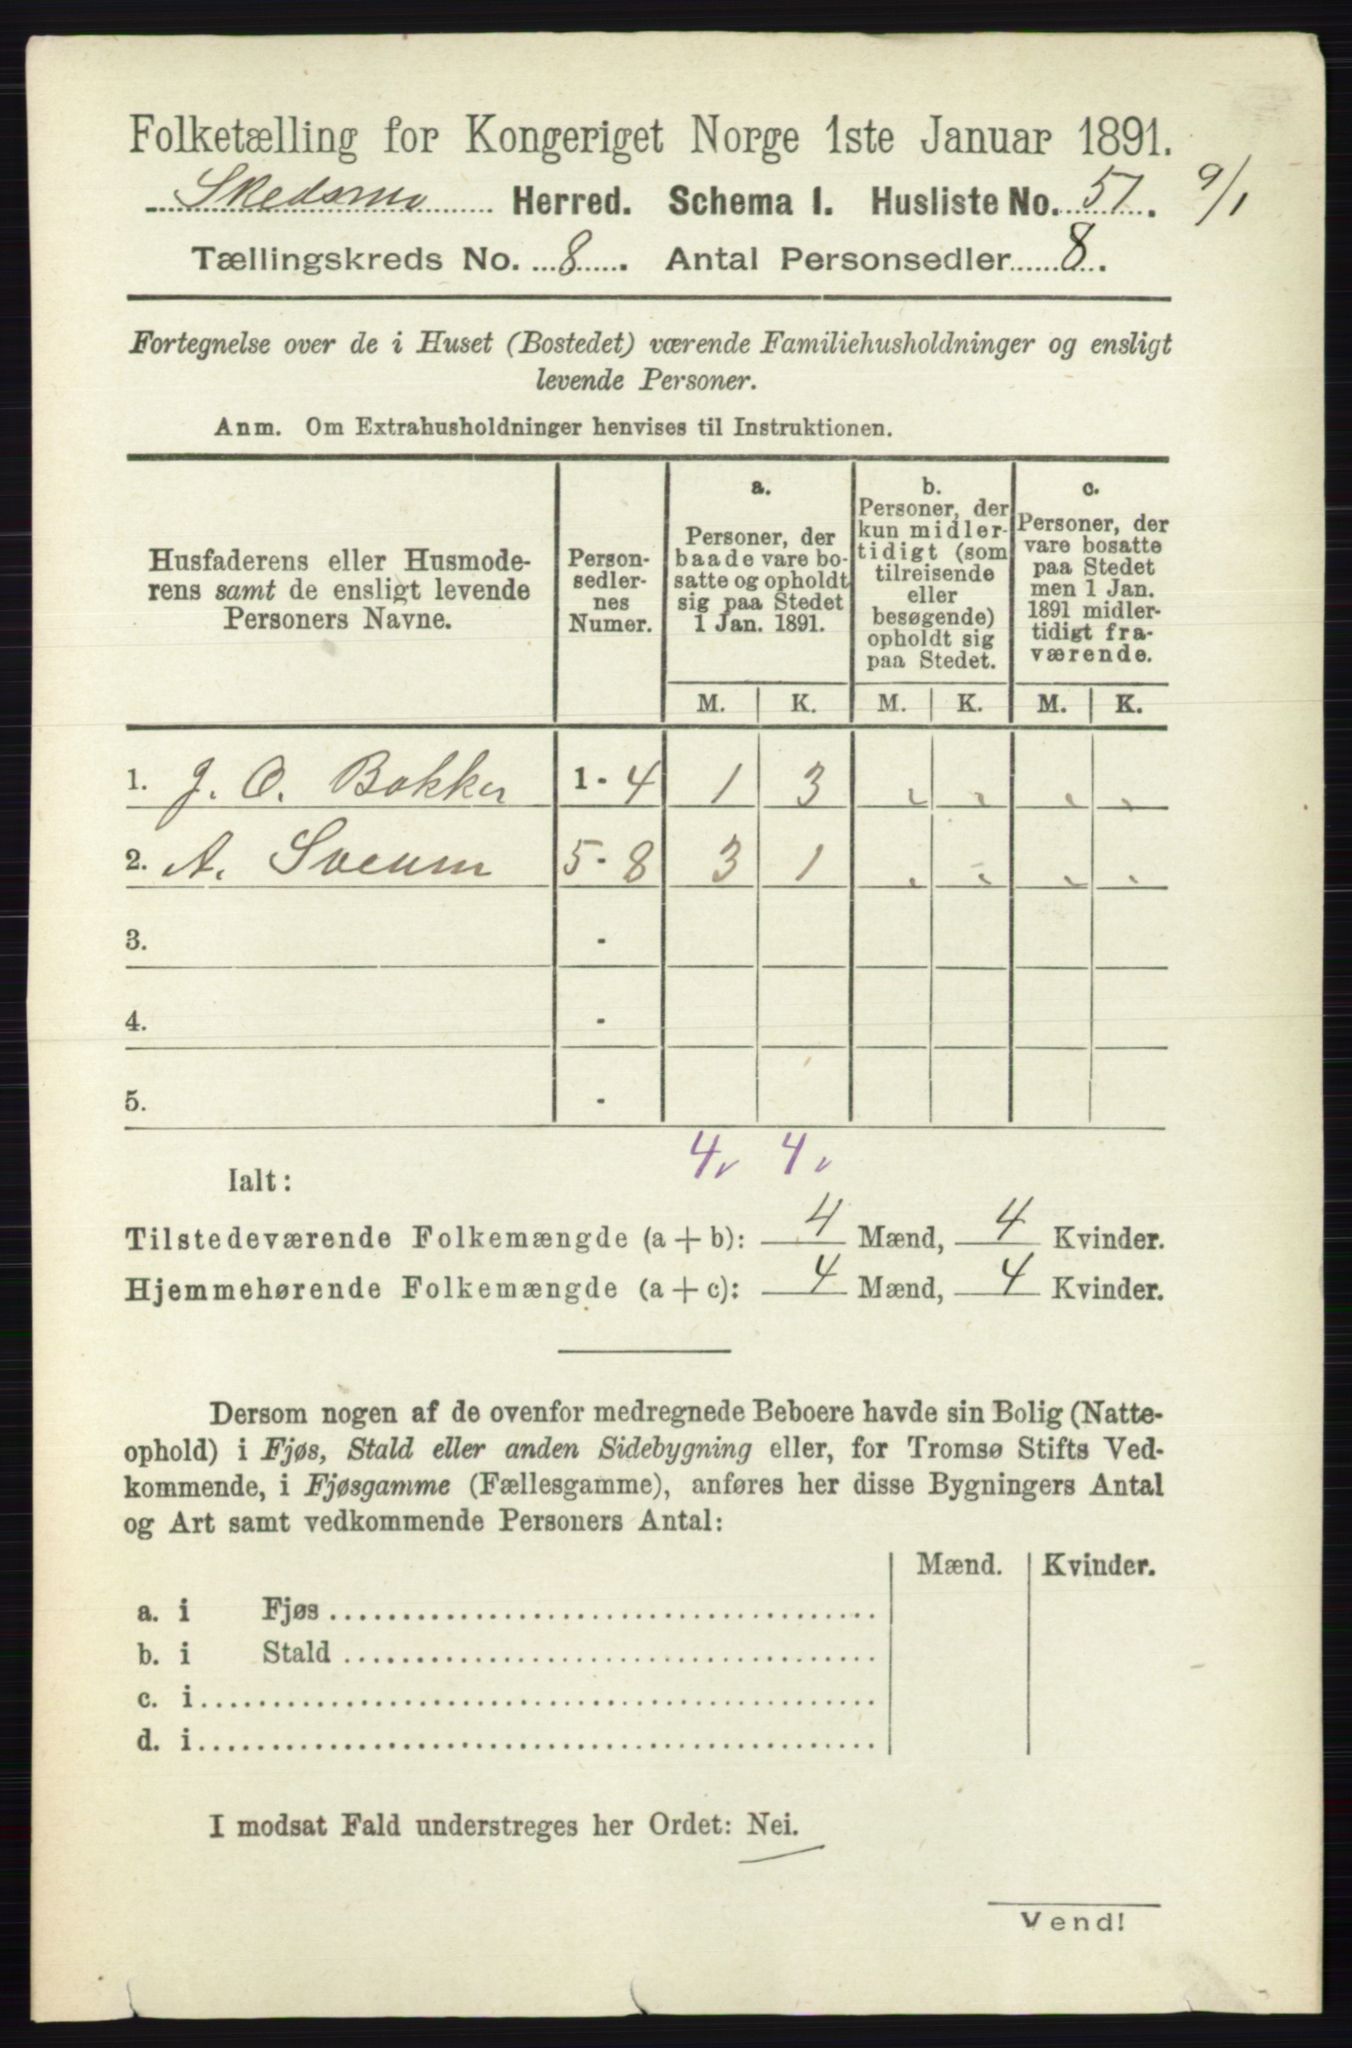 Folketælling for Kongeriget Norge 1ste Januar 1891.
Skedsmo Herred. Schema 1. Husliste No. 51. 9/1
Tællingskreds No. 8. Antal Personsedler 8.
Fortegnelse over de i Huset (Bostedet) værende Familiehusholdninger og ensligt
levende Personer.
Anm. Om Extrahusholdninger henvises til Instruktionen.
Husfaderens eller Husmode-
rens samt de ensligt levende
Personers Navne.
Person-
sedler-
nes
Numer.
a.
Personer, der
baade vare bo-
satte og opholdt
sig paa Stedet
1 Jan. 1891.
b.
Personer, der
kun midler-
tidigt (som
tilreisende
eller
besøgende)
opholdt sig
paa Stedet.
c.
Personer, der
vare bosatte
paa Stedet
men 1 Jan.
1891 midler-
tidigt fra-
værende.
M. K. M. K. M. K.
1. J. O. Bakker 1-4 1 3 „ „ „ „
2. A. Sveum 5-8 3 1 „ „ „ „
3. -
4. -
5. -
4 4
Ialt:
Tilstedeværende Folkemængde (a + b): 4 Mænd, 4 Kvinder.
Hjemmehørende Folkemængde (a + c): 4 Mænd, 4 Kvinder.
Dersom nogen af de ovenfor medregnede Beboere havde sin Bolig (Natte-
ophold) i Fjøs, Stald eller anden Sidebygning eller, for Tromsø Stifts Ved-
kommende, i Fjøsgamme (Fællesgamme), anføres her disse Bygningers Antal
og Art samt vedkommende Personers Antal:
Mænd. Kvinder.
a. i Fjøs
b. i Stald
c. i
d. i
I modsat Fald understreges her Ordet: Nei.
Vend!